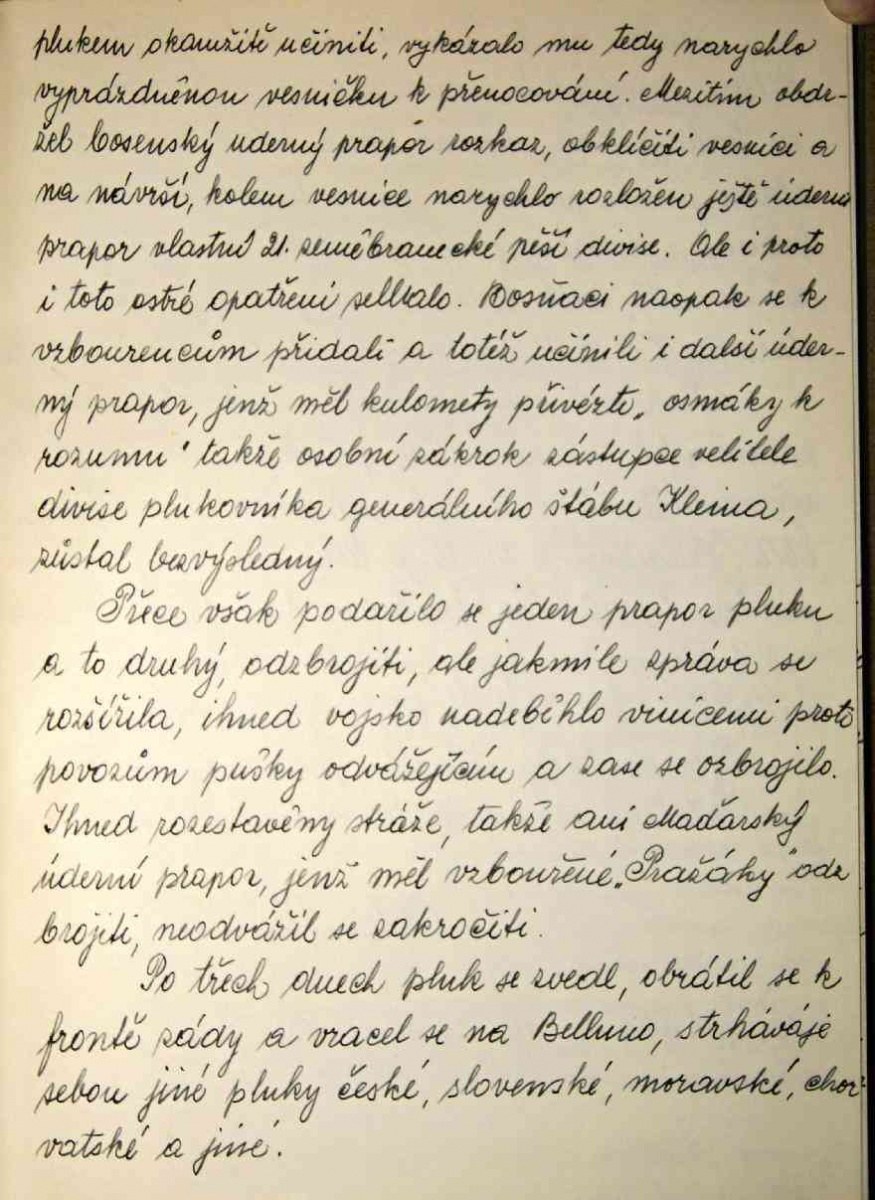 plukem okamžitě učiniti, vykázalo mu tedy narychlo
vyprázdněnou vesničku k přenocování. Mezitím obdr-
žel bosenský uderný prapor rozkaz, obklíčiti vesnici a
na návrší, kolem vesnice narychlo rozložen ještě úderný
prapor vlastní 21. zeměbranecké pěší divise. Ale i proto
i toto ostré opatření selhalo. Bosňaci naopak se k
vzbouřencům přidali a totéž učinili i další úder-
ný prapor, jenž měl kulomety přivézti „osmáky k
rozumu" takže osobní zákrok zástupce velitele
divise plukovníka generálního štábu Kleina,
zůstal bezvýsledný.
Přece však podařilo se jeden prapor pluku
a to druhý, odzbrojiti, ale jakmile zpráva se
rozšířila, ihned vojsko nadeběhlo vinicemi proti
povozům pušky odvážejícím a zase se ozbrojilo.
Ihned rozestavěny stráže, takže ani Maďarský
úderní prapor, jenž měl vzbouřené „Pražáky" odz
brojiti, neodvážil se zakročiti.
Po třech dnech pluk se zvedl, obrátil se k
frontě zády a vracel se na Belluno, strhávaje
sebou jiné pluky české, slovenské, moravské, chor-
vatské a jiné.